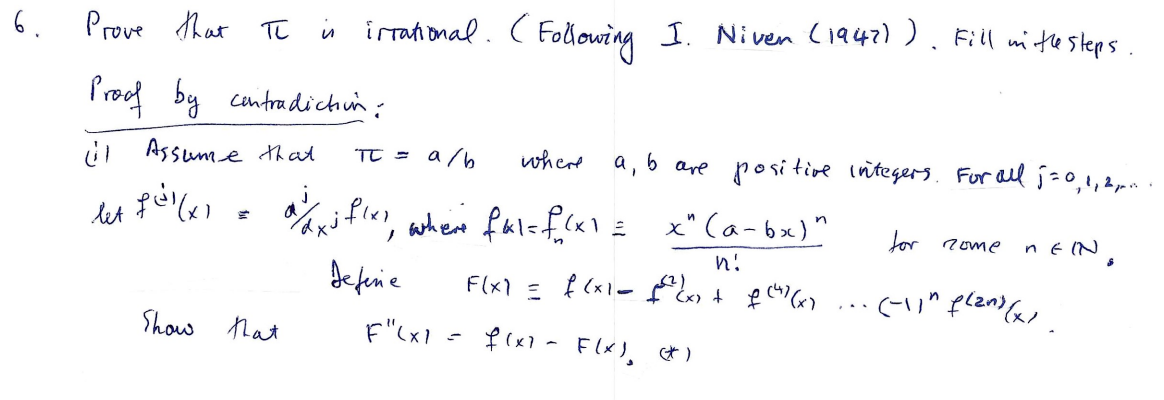 6. Prove that π is irrational. (Following I. Niven (1947)). Fill in the steps.
Proof by contradiction:
(i) Assume that π = a/b where a, b are positive integers. For all j=0,1,2,....
let f^(j)(x) = d^j/dx^j f(x), where f(x)=f_n(x) ≡ x^n (a-bx)^n / n! for some n ∈ ℕ.
Define F(x) ≡ f(x) - f^(2)(x) + f^(4)(x) ... (-1)^n f^(2n)(x).
Show that F''(x) = f(x) - F(x). (*)